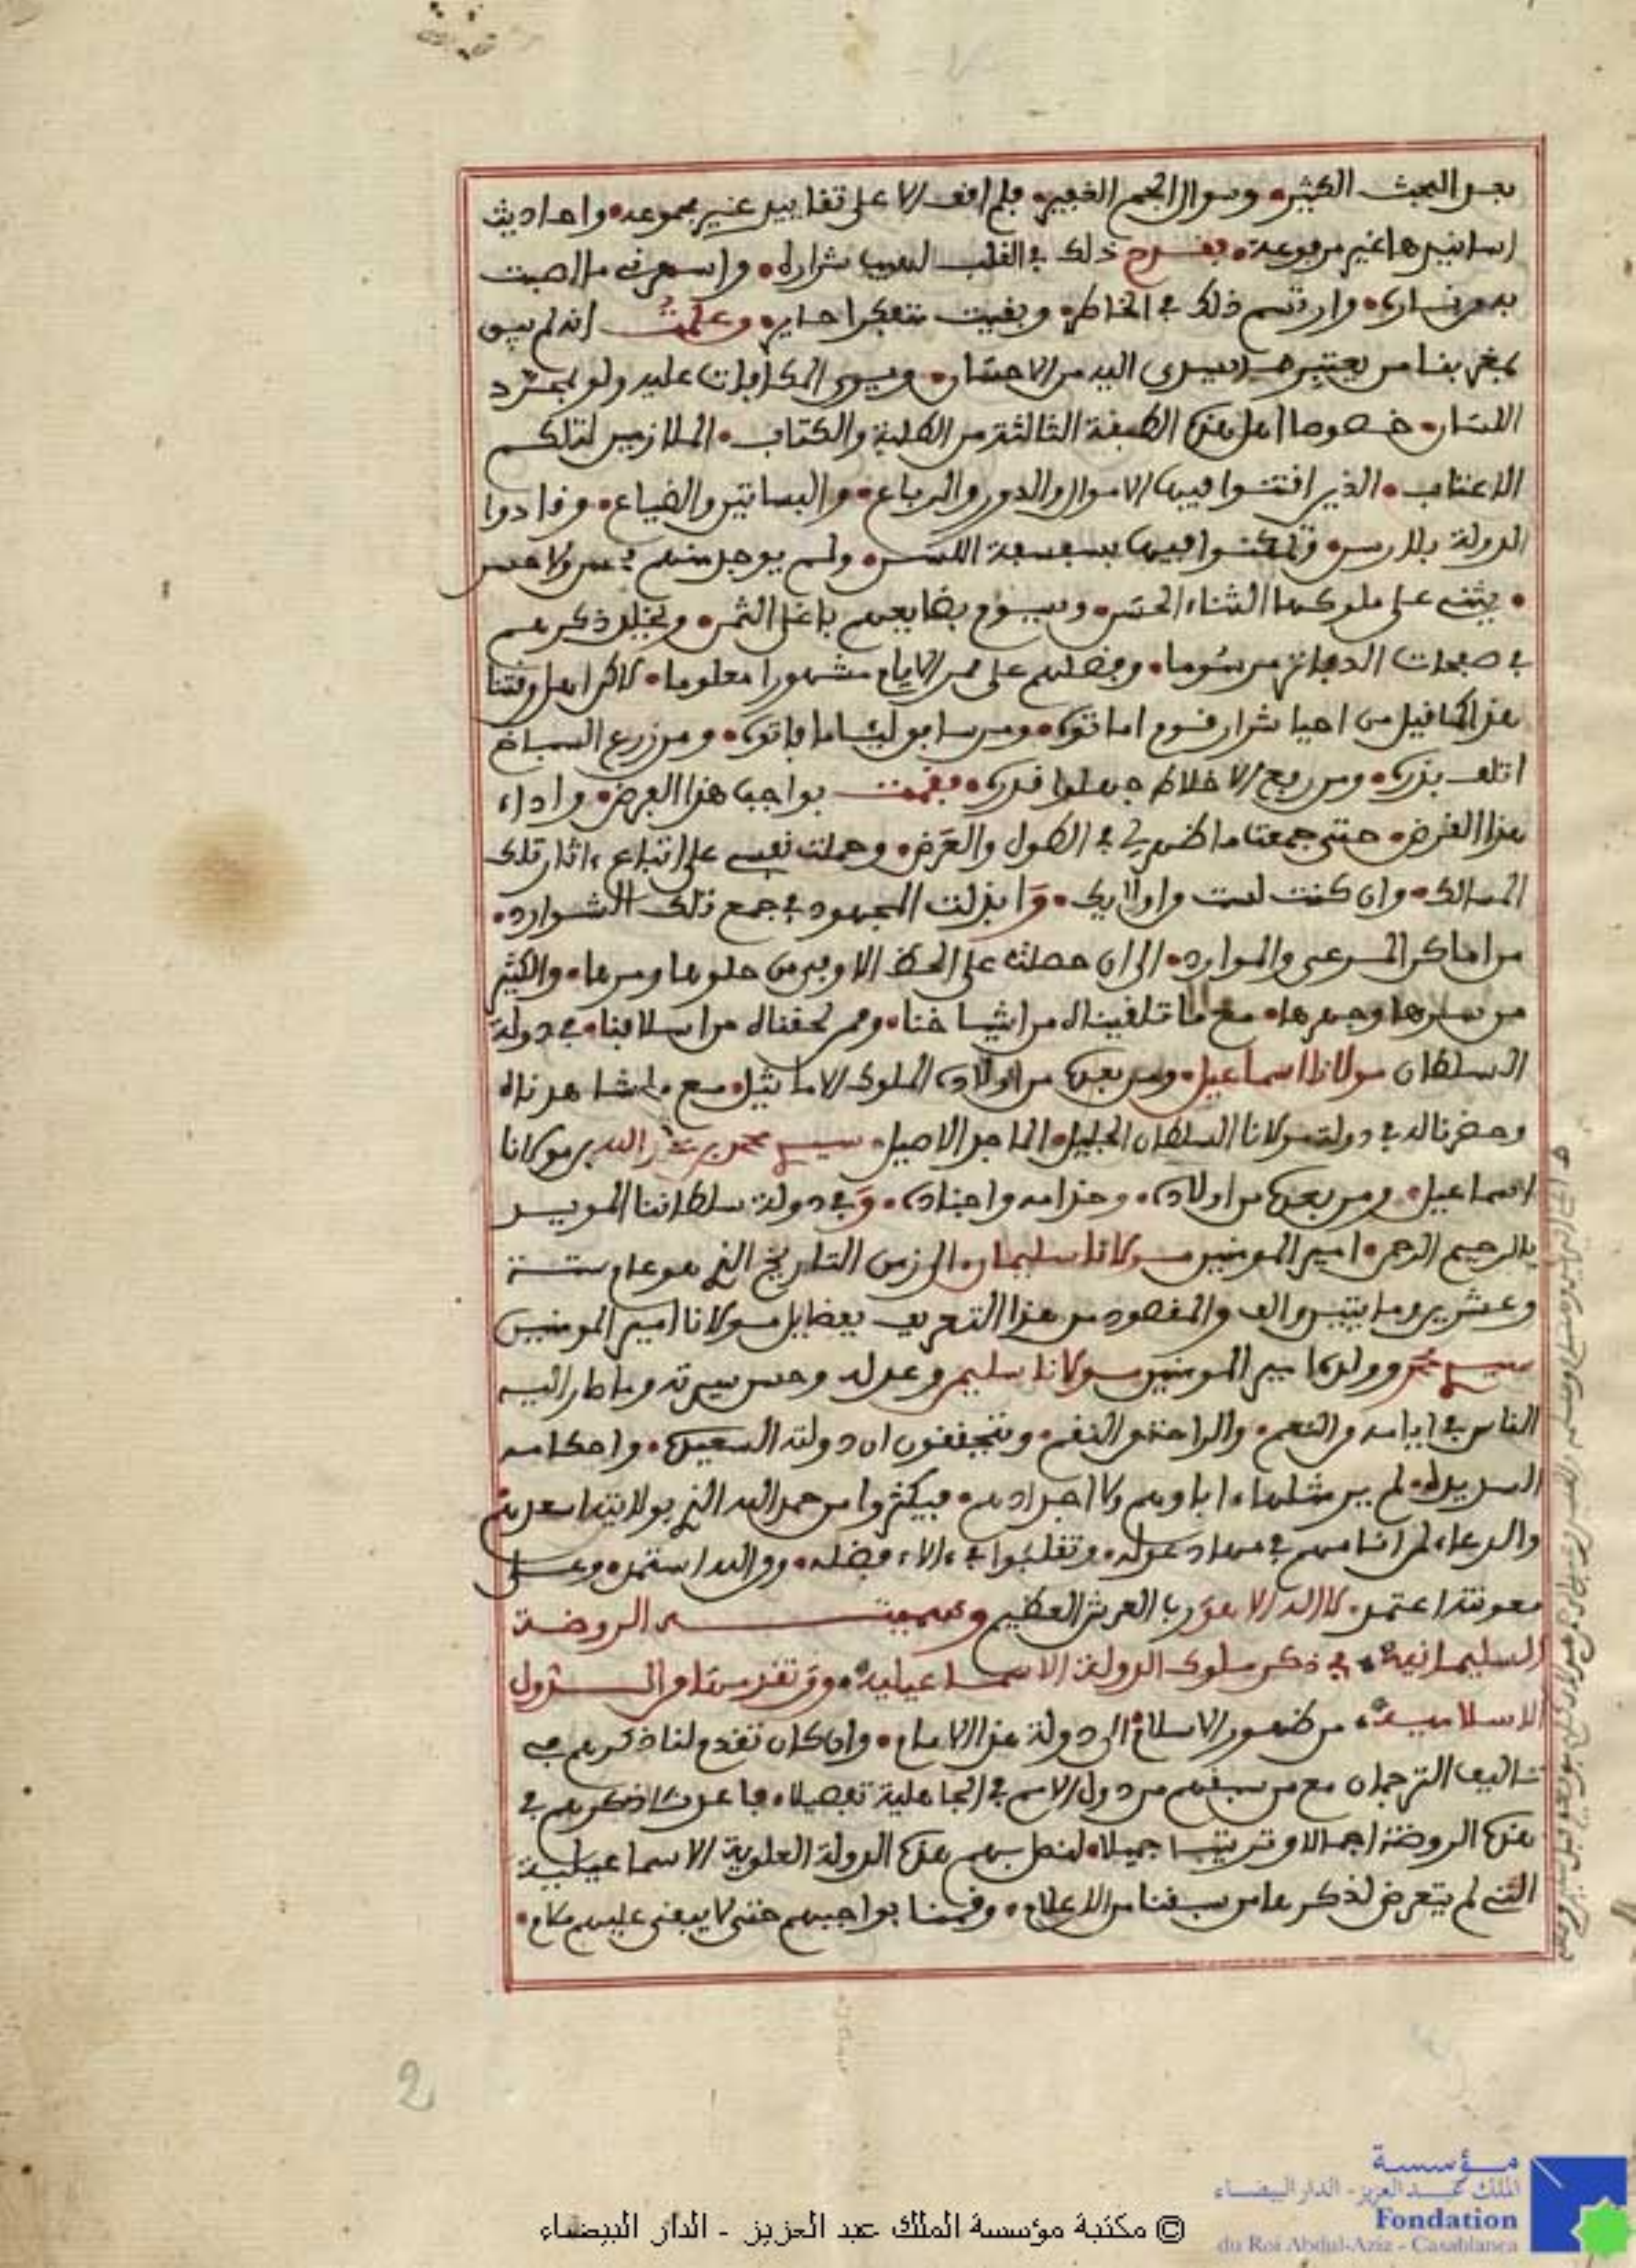 بعد البحث الكثير، وسوال الجم الغفير، فلم اقف الا على تقاييد غير مجموعه، واحاديث
اسانيدها غير مرفوعة، فقدح ذلك في القلب لهيب شراره، و
وارتسم ذلك في الخاطر، وبقيت متفكرا حاير، وعلمت انه لم يبق
بمغربنا من يعتبر ما يسدى اليه من الاحسان، ويرى المكافات عليه ولو بمجرد
اللسان، خصوصا اهل هذه الطبقة الثالثة من الطلبة والكتاب، الملازمين لتلكم
الاعتاب، الذين اقتنوا فيها الاموال والدور والرباع، والبساتين والضياع، وقادوا
الدولة بلا رسن، وتمكنوا فيها بسفسفة اللسن، ولم يوجد منهم
يثني على ملوكها الثناء الحسن، ويسوم بضايعهم باغلى الثمن، ويخلد ذكرهم
في صفحات الدفاتر مرسوما، وفضلهم على ممر الايام مشهورا معلوما، لاكن اهل وقتنا
هذا كما قيل من احيا شرار قوم اماتوه، ومن سابق لئاما فاتوه، ومن زرع السباخ
اتلف بذره، ومن رفع الاخلاط جهلوا قدره، فقمت بواجب هذا الغرض، واداء
هذا الفرض، حتى جمعت ما ظهر لي في الطول والعرض، وحملت نفسي على اتباع ءاثار تلك
المسالك، وان كنت لست وارلايك، وابذلت المجهود في جمع تلك الشوارد،
من اماكن المرعى والموارد، الى ان حصلت على الحظ الاوفر من حلوها ومرها، والكثير
من سرها وجهرها، مع ما تلقيناه من اشياخنا، وممن لحقناه من اسلافنا، في دولة
السلطان مولانا اسماعيل، ومن بعده من اولاده الملوك الاماثيل، مع ما شاهدناه
وحضرناله في دولة مولانا السلطان الجليل، الماجد الاصيل، سيدي محمد بن عبد الله بن مولانا
اسماعيل، ومن بعده من اولاده، وخدامه واجناده، وفي دولة سلطاننا المويد
بالرحيم الرحمن، امير المومنين مولانا سليمان، الى زمن التاريخ الذي هو عام ستة
وعشرين ومايتين والف والمقصود من هذا التعريف بفضايل مولانا امير المومنين
سيدي محمد وولده امير المومنين مولانا سليمن وعدله وحسن سيرته وما صار اليه
الناس في ايامه والنعم، والراحة والنقم، ويتحققون ان دولته السعيدة، واحكامه
السديدة، لم ير مثلها ءاباوهم ولا اجدادهم، فيكثروا من حمد الله الذي بولايته اسعدهم
والدعاء لمن انامهم في مهاد عدله، وتقلبوا في ءالاء فضله، والله استمد، وعلى
معونته اعتمد، لا اله الا هو رب العرش العظيم وسميته الروضة
السليمانية، في ذكر ملوك الدولة الاسماعيلية، ومن تقدمها من الدول
الاسلامية، من ظهور الاسلام الى دولة هذا الامام، وان كان تقدم لنا ذكرهم في
تاليف الترجمان مع من سبقهم من دول الامم في الجاهلية تفصيلا، فاعدت ذكرهم في
هذه الروضة اجمالا وترتيبا جميلا، لنصل بهم هذه الدولة العلوية الاسماعيلية
التي لم يتعرض لذكرها من سبقنا من الاعلام، وقمنا بواجبهم حتى لا يبقى عليهم ملام،
2
مؤسسة
الملك عبد العزيز - الدار البيضاء
Fondation
du Roi Abdul-Aziz - Casablanca
© مكتبة مؤسسة الملك عبد العزيز - الدار البيضاء